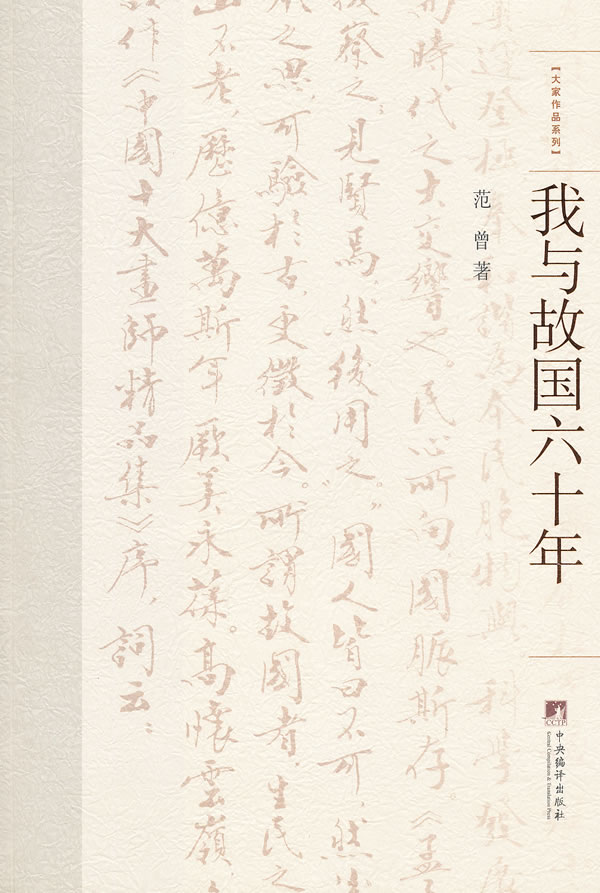 【大家作品系列】
我与故国六十年
范曾著
CCTP
中央编译出版社
Central Compilation & Translation Press
民胞物與科學發展
時代之大交響也。民心所向,國脈斯存。《孟
後察之;見賢焉,然後用之。”國人皆曰不可,然
之思,可驗於古,更徵於今。所謂故國者,生民之
山不老,歷億萬斯年厥美永葆。高懷雲嶺,
作《中國十大畫師精品集》序,詞云: